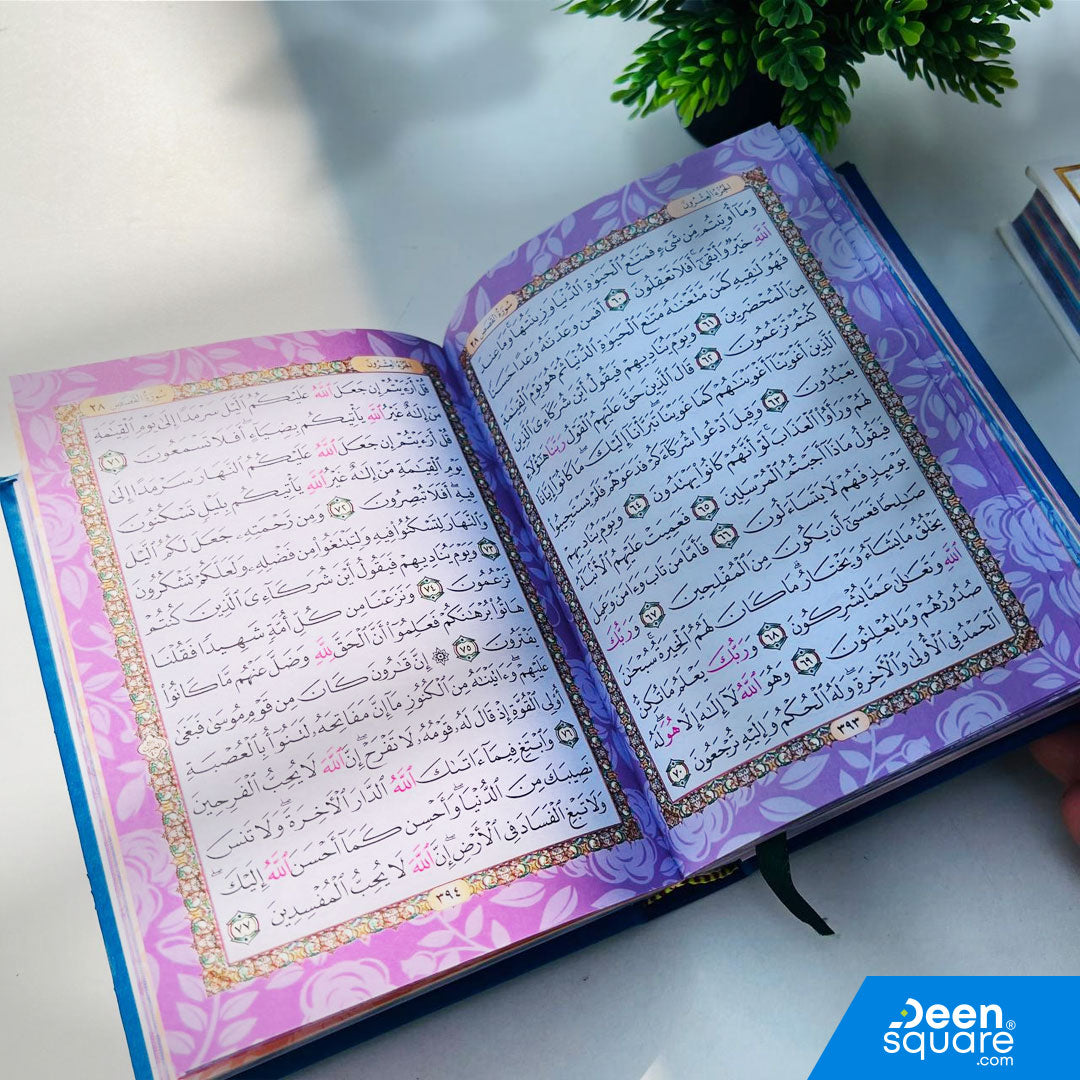 الجُزْءُ العِشْرُونَ
سُورَةُ القَصَصِ ٢٨
وَمَآ أُوتِيتُم مِّن شَىْءٍ فَمَتَٰعُ ٱلْحَيَوٰةِ ٱلدُّنْيَا وَزِينَتُهَا ۚ وَمَا عِندَ
ٱللَّهِ خَيْرٌ وَأَبْقَىٰٓ ۚ أَفَلَا تَعْقِلُونَ ٦٠ أَفَمَن وَعَدْنَٰهُ وَعْدًا حَسَنًا
فَهُوَ لَٰقِيهِ كَمَن مَّتَّعْنَٰهُ مَتَٰعَ ٱلْحَيَوٰةِ ٱلدُّنْيَا ثُمَّ هُوَ يَوْمَ ٱلْقِيَٰمَةِ
مِنَ ٱلْمُحْضَرِينَ ٦١ وَيَوْمَ يُنَادِيهِمْ فَيَقُولُ أَيْنَ شُرَكَآءِىَ ٱلَّذِينَ
كُنتُمْ تَزْعُمُونَ ٦٢ قَالَ ٱلَّذِينَ حَقَّ عَلَيْهِمُ ٱلْقَوْلُ رَبَّنَا هَٰٓؤُلَآءِ
ٱلَّذِينَ أَغْوَيْنَآ أَغْوَيْنَٰهُمْ كَمَا غَوَيْنَا ۖ تَبَرَّأْنَآ إِلَيْكَ ۖ مَا كَانُوٓا۟ إِيَّانَا
يَعْبُدُونَ ٦٣ وَقِيلَ ٱدْعُوا۟ شُرَكَآءَكُمْ فَدَعَوْهُمْ فَلَمْ يَسْتَجِيبُوا۟
لَهُمْ وَرَأَوُا۟ ٱلْعَذَابَ ۚ لَوْ أَنَّهُمْ كَانُوا۟ يَهْتَدُونَ ٦٤ وَيَوْمَ يُنَادِيهِمْ
فَيَقُولُ مَاذَآ أَجَبْتُمُ ٱلْمُرْسَلِينَ ٦٥ فَعَمِيَتْ عَلَيْهِمُ ٱلْأَنۢبَآءُ
يَوْمَئِذٍ فَهُمْ لَا يَتَسَآءَلُونَ ٦٦ فَأَمَّا مَن تَابَ وَءَامَنَ وَعَمِلَ
صَٰلِحًا فَعَسَىٰٓ أَن يَكُونَ مِنَ ٱلْمُفْلِحِينَ ٦٧ وَرَبُّكَ
يَخْلُقُ مَا يَشَآءُ وَيَخْتَارُ ۗ مَا كَانَ لَهُمُ ٱلْخِيَرَةُ ۚ سُبْحَٰنَ
ٱللَّهِ وَتَعَٰلَىٰ عَمَّا يُشْرِكُونَ ٦٨ وَرَبُّكَ يَعْلَمُ مَا تُكِنُّ
صُدُورُهُمْ وَمَا يُعْلِنُونَ ٦٩ وَهُوَ ٱللَّهُ لَآ إِلَٰهَ إِلَّا هُوَ ۖ لَهُ
ٱلْحَمْدُ فِى ٱلْأُولَىٰ وَٱلْءَاخِرَةِ ۖ وَلَهُ ٱلْحُكْمُ وَإِلَيْهِ تُرْجَعُونَ ٧٠
٣٩٣
الجُزْءُ العِشْرُونَ
سُورَةُ القَصَصِ ٢٨
قُلْ أَرَءَيْتُمْ إِن جَعَلَ ٱللَّهُ عَلَيْكُمُ ٱلَّيْلَ سَرْمَدًا إِلَىٰ يَوْمِ ٱلْقِيَٰمَةِ
مَنْ إِلَٰهٌ غَيْرُ ٱللَّهِ يَأْتِيكُم بِضِيَآءٍ ۖ أَفَلَا تَسْمَعُونَ ٧١
قُلْ أَرَءَيْتُمْ إِن جَعَلَ ٱللَّهُ عَلَيْكُمُ ٱلنَّهَارَ سَرْمَدًا إِلَىٰ
يَوْمِ ٱلْقِيَٰمَةِ مَنْ إِلَٰهٌ غَيْرُ ٱللَّهِ يَأْتِيكُم بِلَيْلٍ تَسْكُنُونَ
فِيهِ ۖ أَفَلَا تُبْصِرُونَ ٧٢ وَمِن رَّحْمَتِهِۦ جَعَلَ لَكُمُ ٱلَّيْلَ
وَٱلنَّهَارَ لِتَسْكُنُوا۟ فِيهِ وَلِتَبْتَغُوا۟ مِن فَضْلِهِۦ وَلَعَلَّكُمْ تَشْكُرُونَ
٧٣ وَيَوْمَ يُنَادِيهِمْ فَيَقُولُ أَيْنَ شُرَكَآءِىَ ٱلَّذِينَ كُنتُمْ
تَزْعُمُونَ ٧٤ وَنَزَعْنَا مِن كُلِّ أُمَّةٍ شَهِيدًا فَقُلْنَا
هَاتُوا۟ بُرْهَٰنَكُمْ فَعَلِمُوٓا۟ أَنَّ ٱلْحَقَّ لِلَّهِ وَضَلَّ عَنْهُم مَّا كَانُوا۟
يَفْتَرُونَ ٧٥ ۞ إِنَّ قَٰرُونَ كَانَ مِن قَوْمِ مُوسَىٰ فَبَغَىٰ
عَلَيْهِمْ ۖ وَءَاتَيْنَٰهُ مِنَ ٱلْكُنُوزِ مَآ إِنَّ مَفَاتِحَهُۥ لَتَنُوٓأُ بِٱلْعُصْبَةِ
أُو۟لِى ٱلْقُوَّةِ إِذْ قَالَ لَهُۥ قَوْمُهُۥ لَا تَفْرَحْ ۖ إِنَّ ٱللَّهَ لَا يُحِبُّ ٱلْفَرِحِينَ
٧٦ وَٱبْتَغِ فِيمَآ ءَاتَىٰكَ ٱللَّهُ ٱلدَّارَ ٱلْءَاخِرَةَ ۖ وَلَا تَنسَ
نَصِيبَكَ مِنَ ٱلدُّنْيَا ۖ وَأَحْسِن كَمَآ أَحْسَنَ ٱللَّهُ إِلَيْكَ ۖ
وَلَا تَبْغِ ٱلْفَسَادَ فِى ٱلْأَرْضِ ۖ إِنَّ ٱللَّهَ لَا يُحِبُّ ٱلْمُفْسِدِينَ ٧٧
٣٩٤
Deen
square®
.com